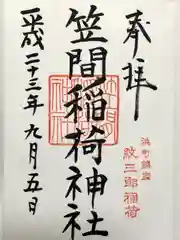 奉拝
浜町鎮座
紋三郎稲荷
笠間稲荷神社
平成二十三年九月五日